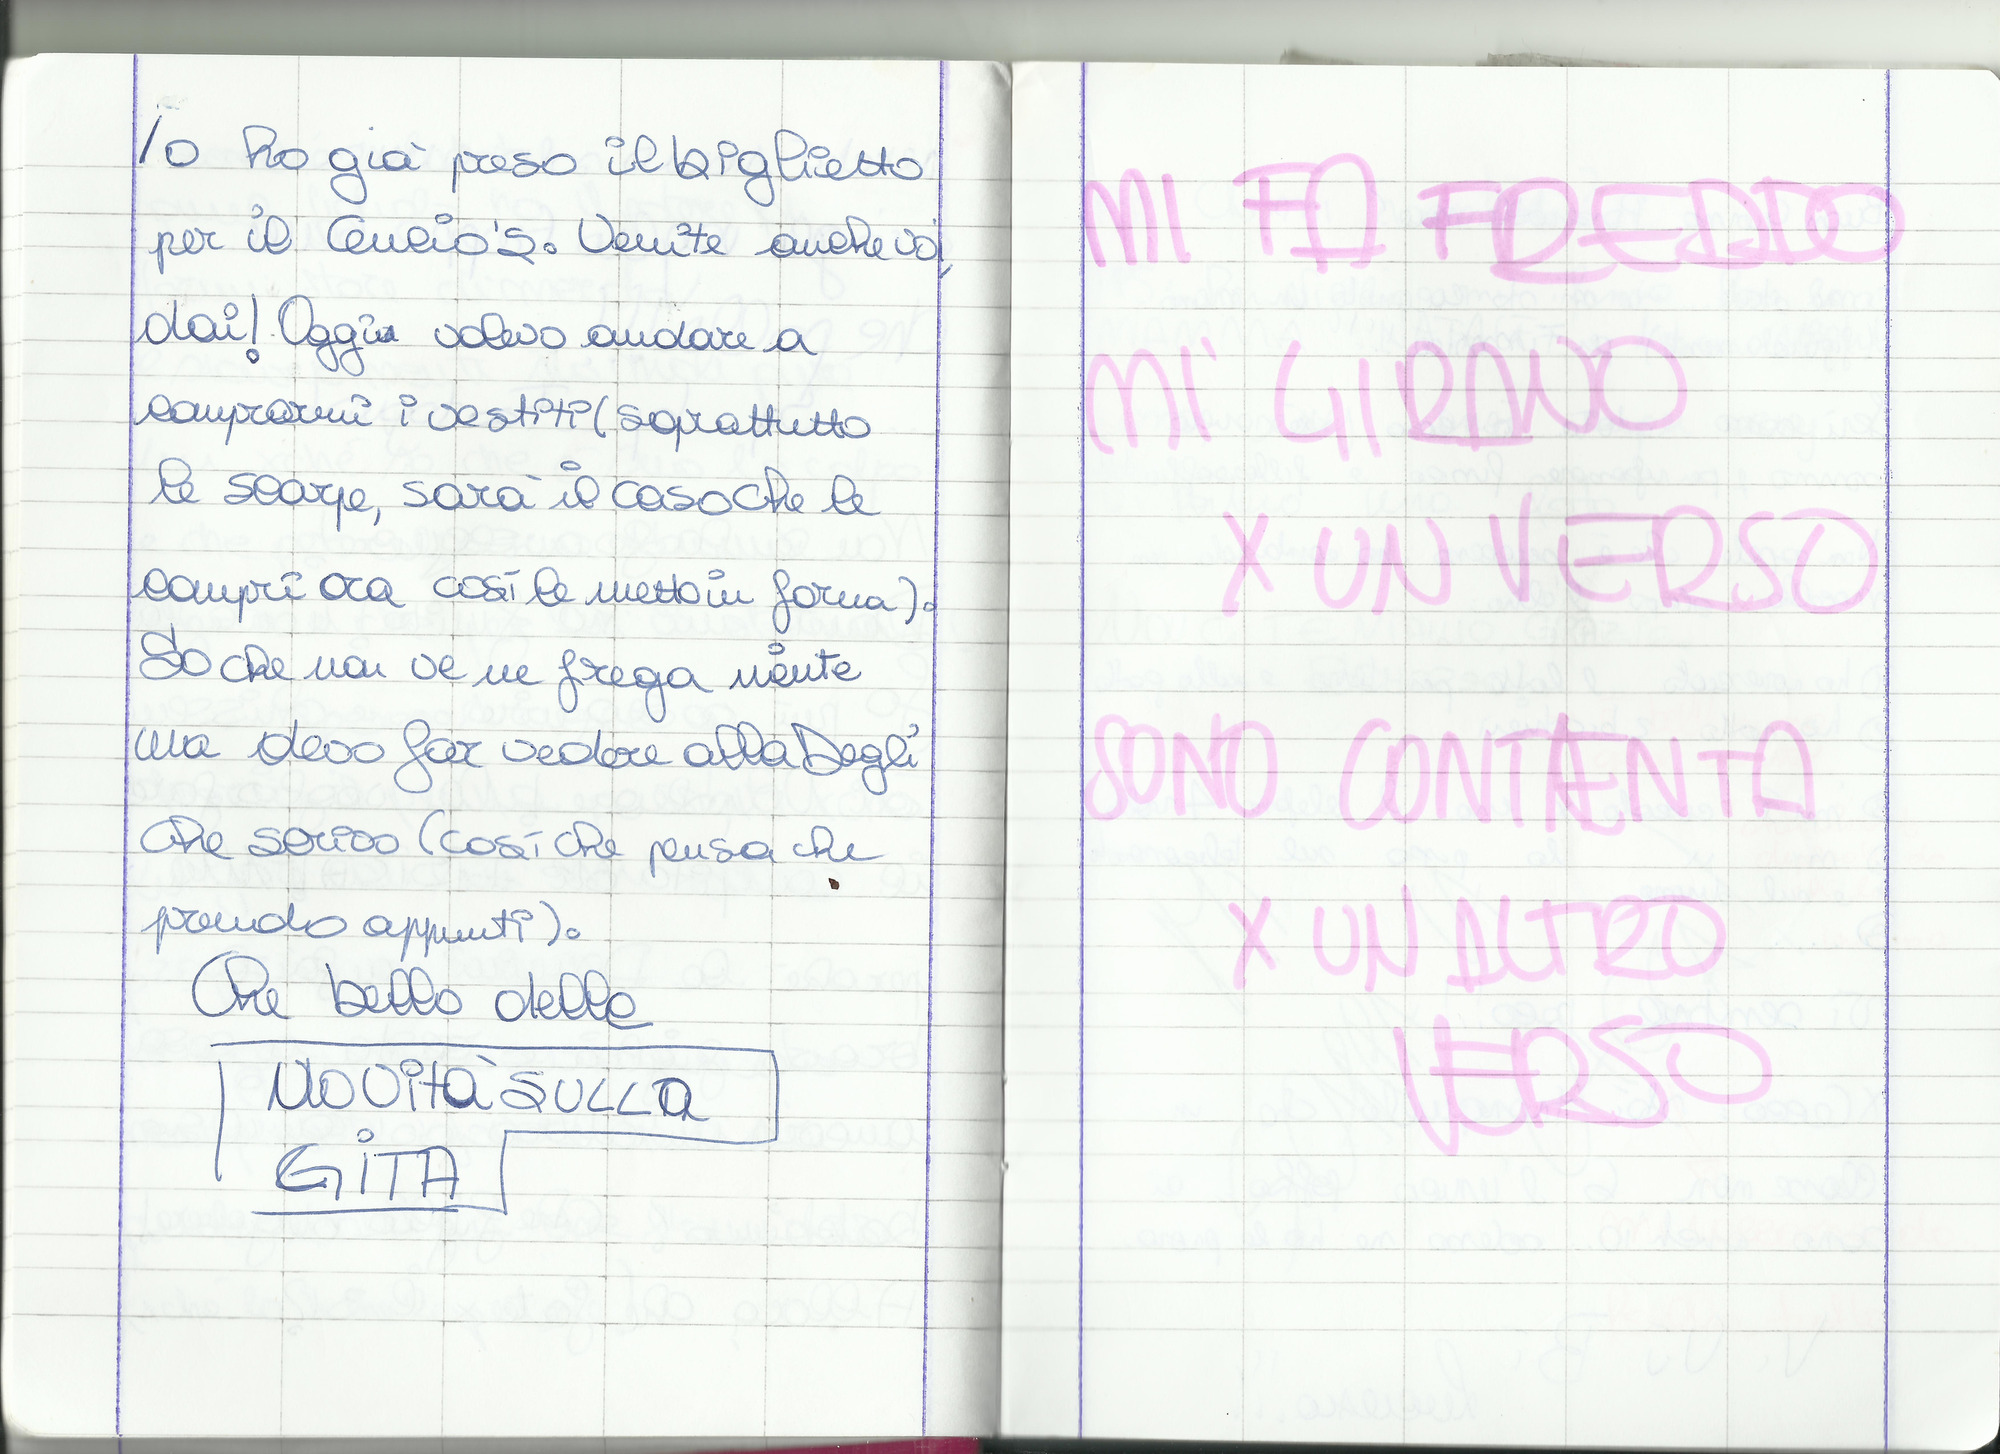 Io ho già preso il biglietto
per il Cencio's. Venite anche voi,
dai! Oggi volevo andare a
comprarmi i vestiti (soprattutto
le scarpe, sarà il caso che le
compri ora così le metto in forma).
So che non ve ne frega niente
ma devo far vedere alla Degli
che scrivo (così che pensa che
prendo appunti).
Che bello delle
NOVITÀ SULLA
GITA
MI FA FREDDO
MI GIRANO
X UN VERSO
SONO CONTENTA
X UN ALTRO
VERSO